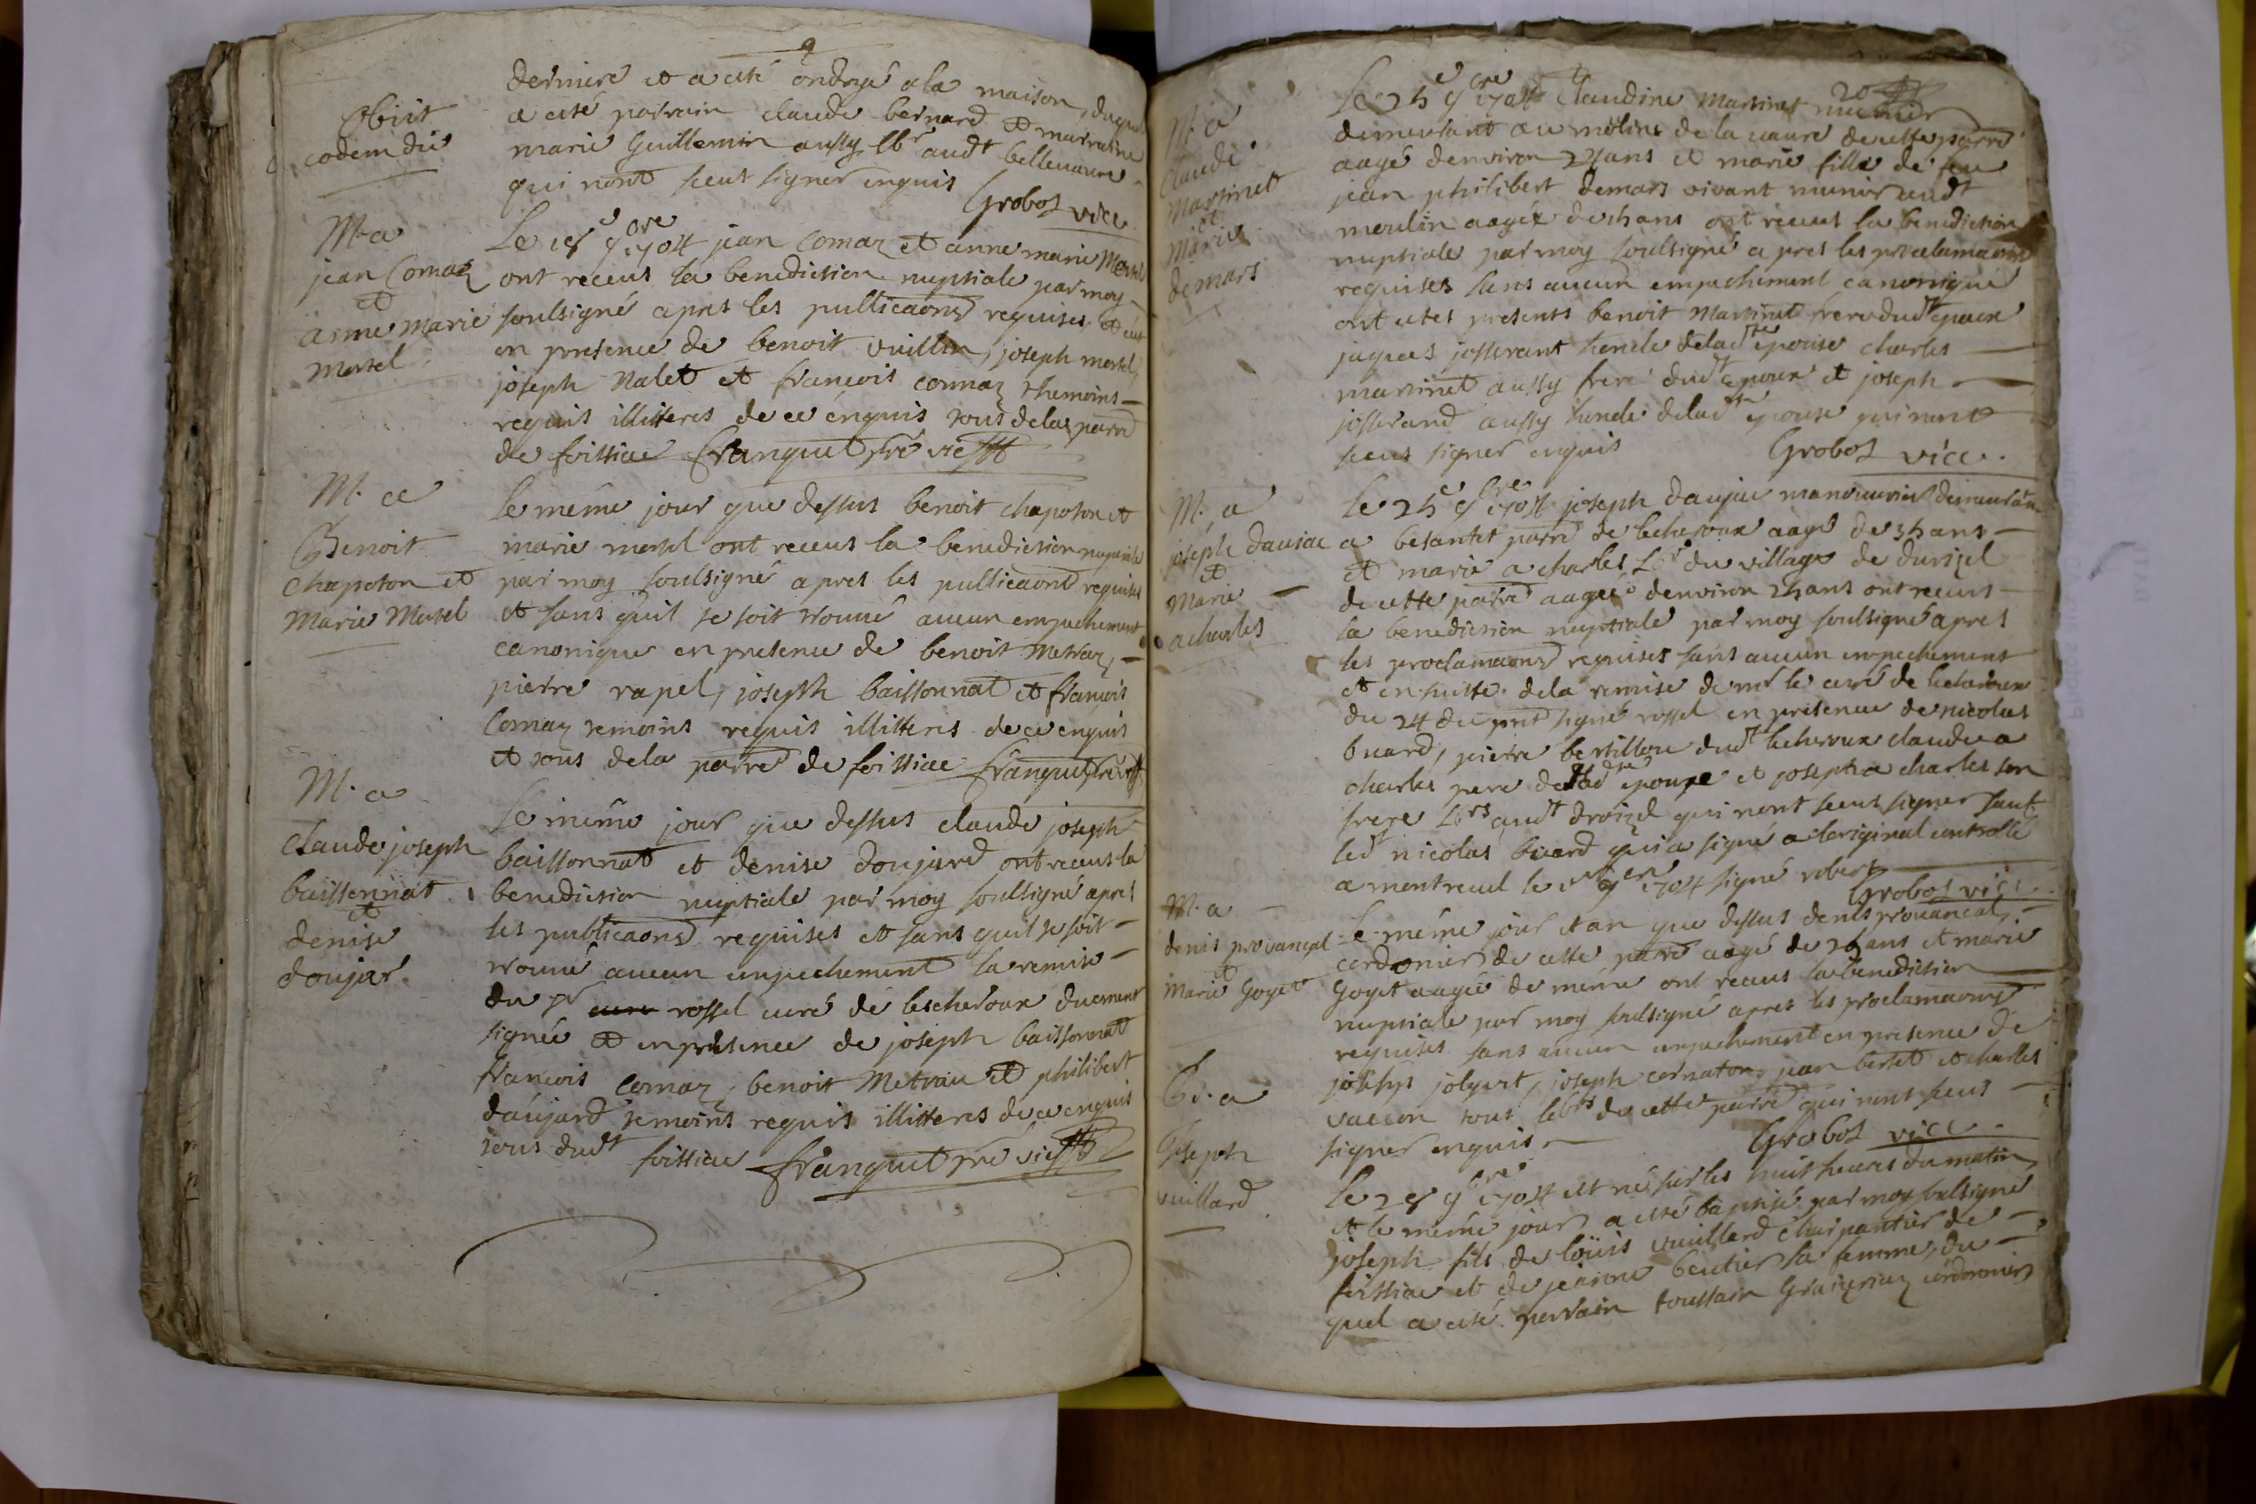 derniere et a esté ondoyé a la maison, duquel
a esté parrain claude bernard et marraine
marie Guillemin aussy lbr audt bellevavre
qui nont sceut signer enquis Grobos vice
Obiit
eodem die
M. a
jean Comaz
et
anne marie
Morel
Le 18e 9bre 1704 jean Comaz et anne marie Morel
ont receus la benediction nuptiale par moy
soulsigné apres les publicaons requises et
en presence de benoit vuillin, joseph morel,
joseph Nalet et francois comaz themoins
requis illitteres de ce enquis tous de la parre
de foissiac franquet pre vic
M. a
Benoit
Chapoton et
Marie Morel
Le même jour que dessus benoit chapoton et
marie morel ont receus la benediction nuptiale
par moy soulsigné apres les publicaons requises
et sans quil se soit trouué aucun empechement
canonique en presence de benoit Metraz,
pierre rapel, joseph baissonnat et francois
Comaz temoins requis illitteres de ce enquis
et tous de la parre de foissiac franquet pre vic
M. a
claude joseph
baissonnat
et
denise
doujar
Le même jour que dessus claude joseph
baissonnat et denise doujard ont receus la
benediction nuptiale par moy soulsigné apres
les publicaons requises et sans quil se soit
trouué aucun empechement la remise
du sr cure rossel curé de lescheroux duement
signée et en presence de joseph baissonnat
francois Comaz, benoit Metrau et philibert
daujard temoins requis illitteres de ce enquis
tous dudt foissiac franquet pre vic
20
M. a
Claude
Martinet
et
Marie
demars
Le 25e 9bre 1704 Claudine Martinet munier
demeurant au molins de la vavre de cette parre
aagé denviron ans et marie fille de feu
jean philibert demars vivant munier audt
moulin aagée de ans ont receus la benediction
nuptiale par moy soulsigné apres les proclamaons
requises sans aucun empechement canonique
ont estes presents benoit Martinet frere dudt epoux
jaques josserant soncle de ladte epouse charles
martinet aussy frere dudt epoux et joseph
josserand aussy soncle de ladte epouse qui nont
sceus signer enquis Grobos vice.
M. a
joseph daujac
et
Marie
acharles
Le 25e 9bre 1704 joseph daujac manouvrier demeurant
a besantet parre de lecheroux aagé de 35 ans
et marie a charles Lbr du village de
de cette parre aagée denviron 25 ans ont receus
la benediction nuptiale par moy soulsigné apres
les proclamaons requises sans aucun empechement
et en suitte de la remise de mr le curé de lecheroux
du 24 du prnt signé rossel en presence de nicolas
buard, pierre bertillon dudt lecheroux claude a
charles pere de ladte epouse et joseph a charles son
frere Lbrs audt qui nont sceus signer sauf
ledt nicolas buard qui a signé a loriginal controllé
a montreuel le 9bre 1704 signé robert
Grobos vice.
M. a
denis provançal
et
Marie Goyet
Le même jour et an que dessus denis provancal,
cordonier de cette parre aagé de 26 ans et marie
Goyet aagée de même ont receus la benediction
nuptiale par moy soulsigné apres les proclamaons
requises sans aucun empechement en presence de
joseph jolyvet, joseph cornaton, jean bertet et charles
vacon tous lbrs de cette parre qui nont sceus
signer enquis Grobos vice.
B. a
Joseph
vuillard
Le 28 9bre 1704 est né sur les huit heures du matin
et le même jour a esté baptisé par moy soulsigné
joseph fils de loüis vuillard charpantier de
foissiac et de jeanne beutier sa femme, du
quel a esté parrain toussain cordonier